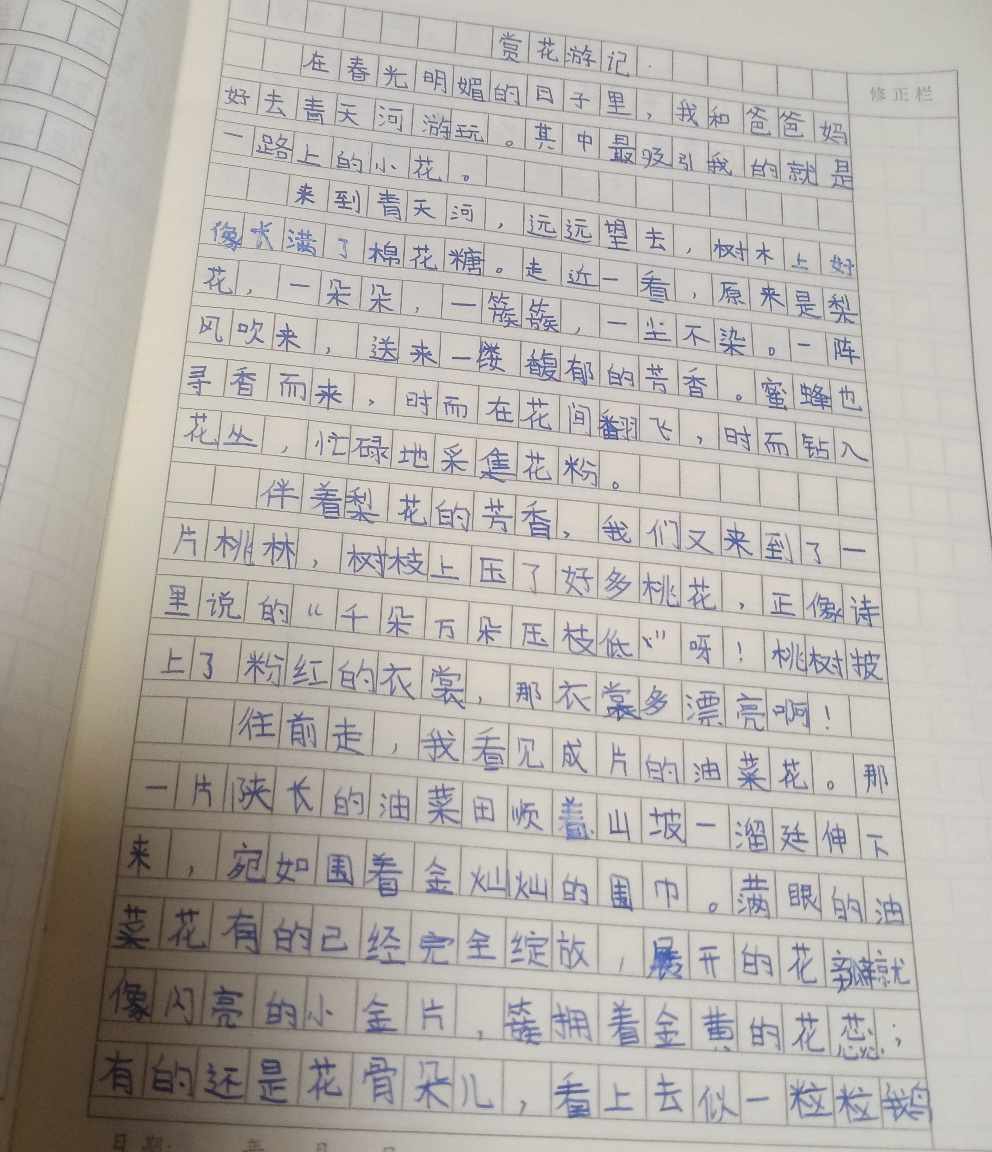 赏花游记
修正栏
在春光明媚的日子里，我和爸爸妈
好去青天河游玩。其中最吸引我的就是
一路上的小花。
来到青天河，远远望去，树木上好
像长满了棉花糖。走近一看，原来是梨
花，一朵朵，一簇簇，一尘不染。一阵
风吹来，送来一缕馥郁的芳香。蜜蜂也
寻香而来，时而在花间翻飞，时而钻入
花丛，忙碌地采集花粉。
伴着梨花的芳香，我们又来到了一
片桃林，树枝上压了好多桃花，正像诗
里说的“千朵万朵压枝低”呀！桃树披
上了粉红的衣裳，那衣裳多漂亮啊！
往前走，我看见成片的油菜花。那
一片狭长的油菜田顺着山坡一溜延伸下
来，宛如围着金灿灿的围巾。满眼的油
菜花有的已经完全绽放，展开的花瓣就
像闪亮的小金片，簇拥着金黄的花蕊；
有的还是花骨朵儿，看上去似一粒粒鹅